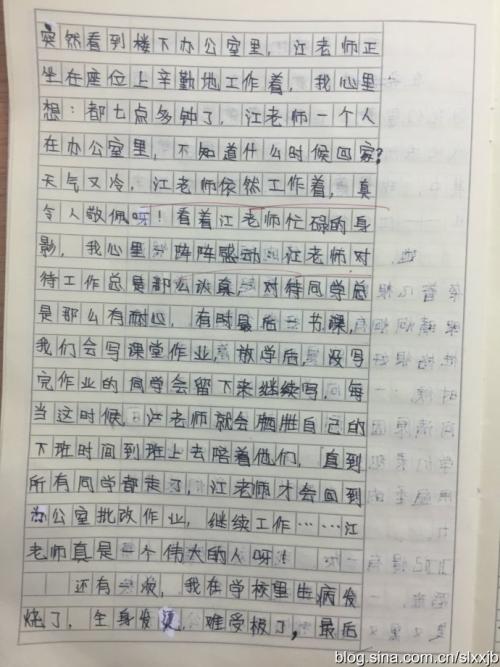 突然看到楼下办公室里，江老师正
坐在座位上辛勤地工作着，我心里
想：都七点多钟了，江老师一个人
在办公室里，不知道什么时候回家？
天气又冷，江老师依然工作着，真
令人敬佩呀！看着江老师忙碌的身
影，我心里一阵阵感动：江老师对
待工作总是那么认真，对待同学总
是那么有耐心，有时最后一节课，
我们会写课堂作业，放学后，没写
完作业的同学会留下来继续写，每
当这时候，江老师就会牺牲自己的
下班时间到班上去陪着他们，直到
所有同学都走了，江老师才会回到
办公室批改作业，继续工作……江
老师真是一个伟大的人呀！
还有一次，我在学校里生病发
烧了，全身发烫，难受极了，最后
blog.sina.com.cn/slxxjb